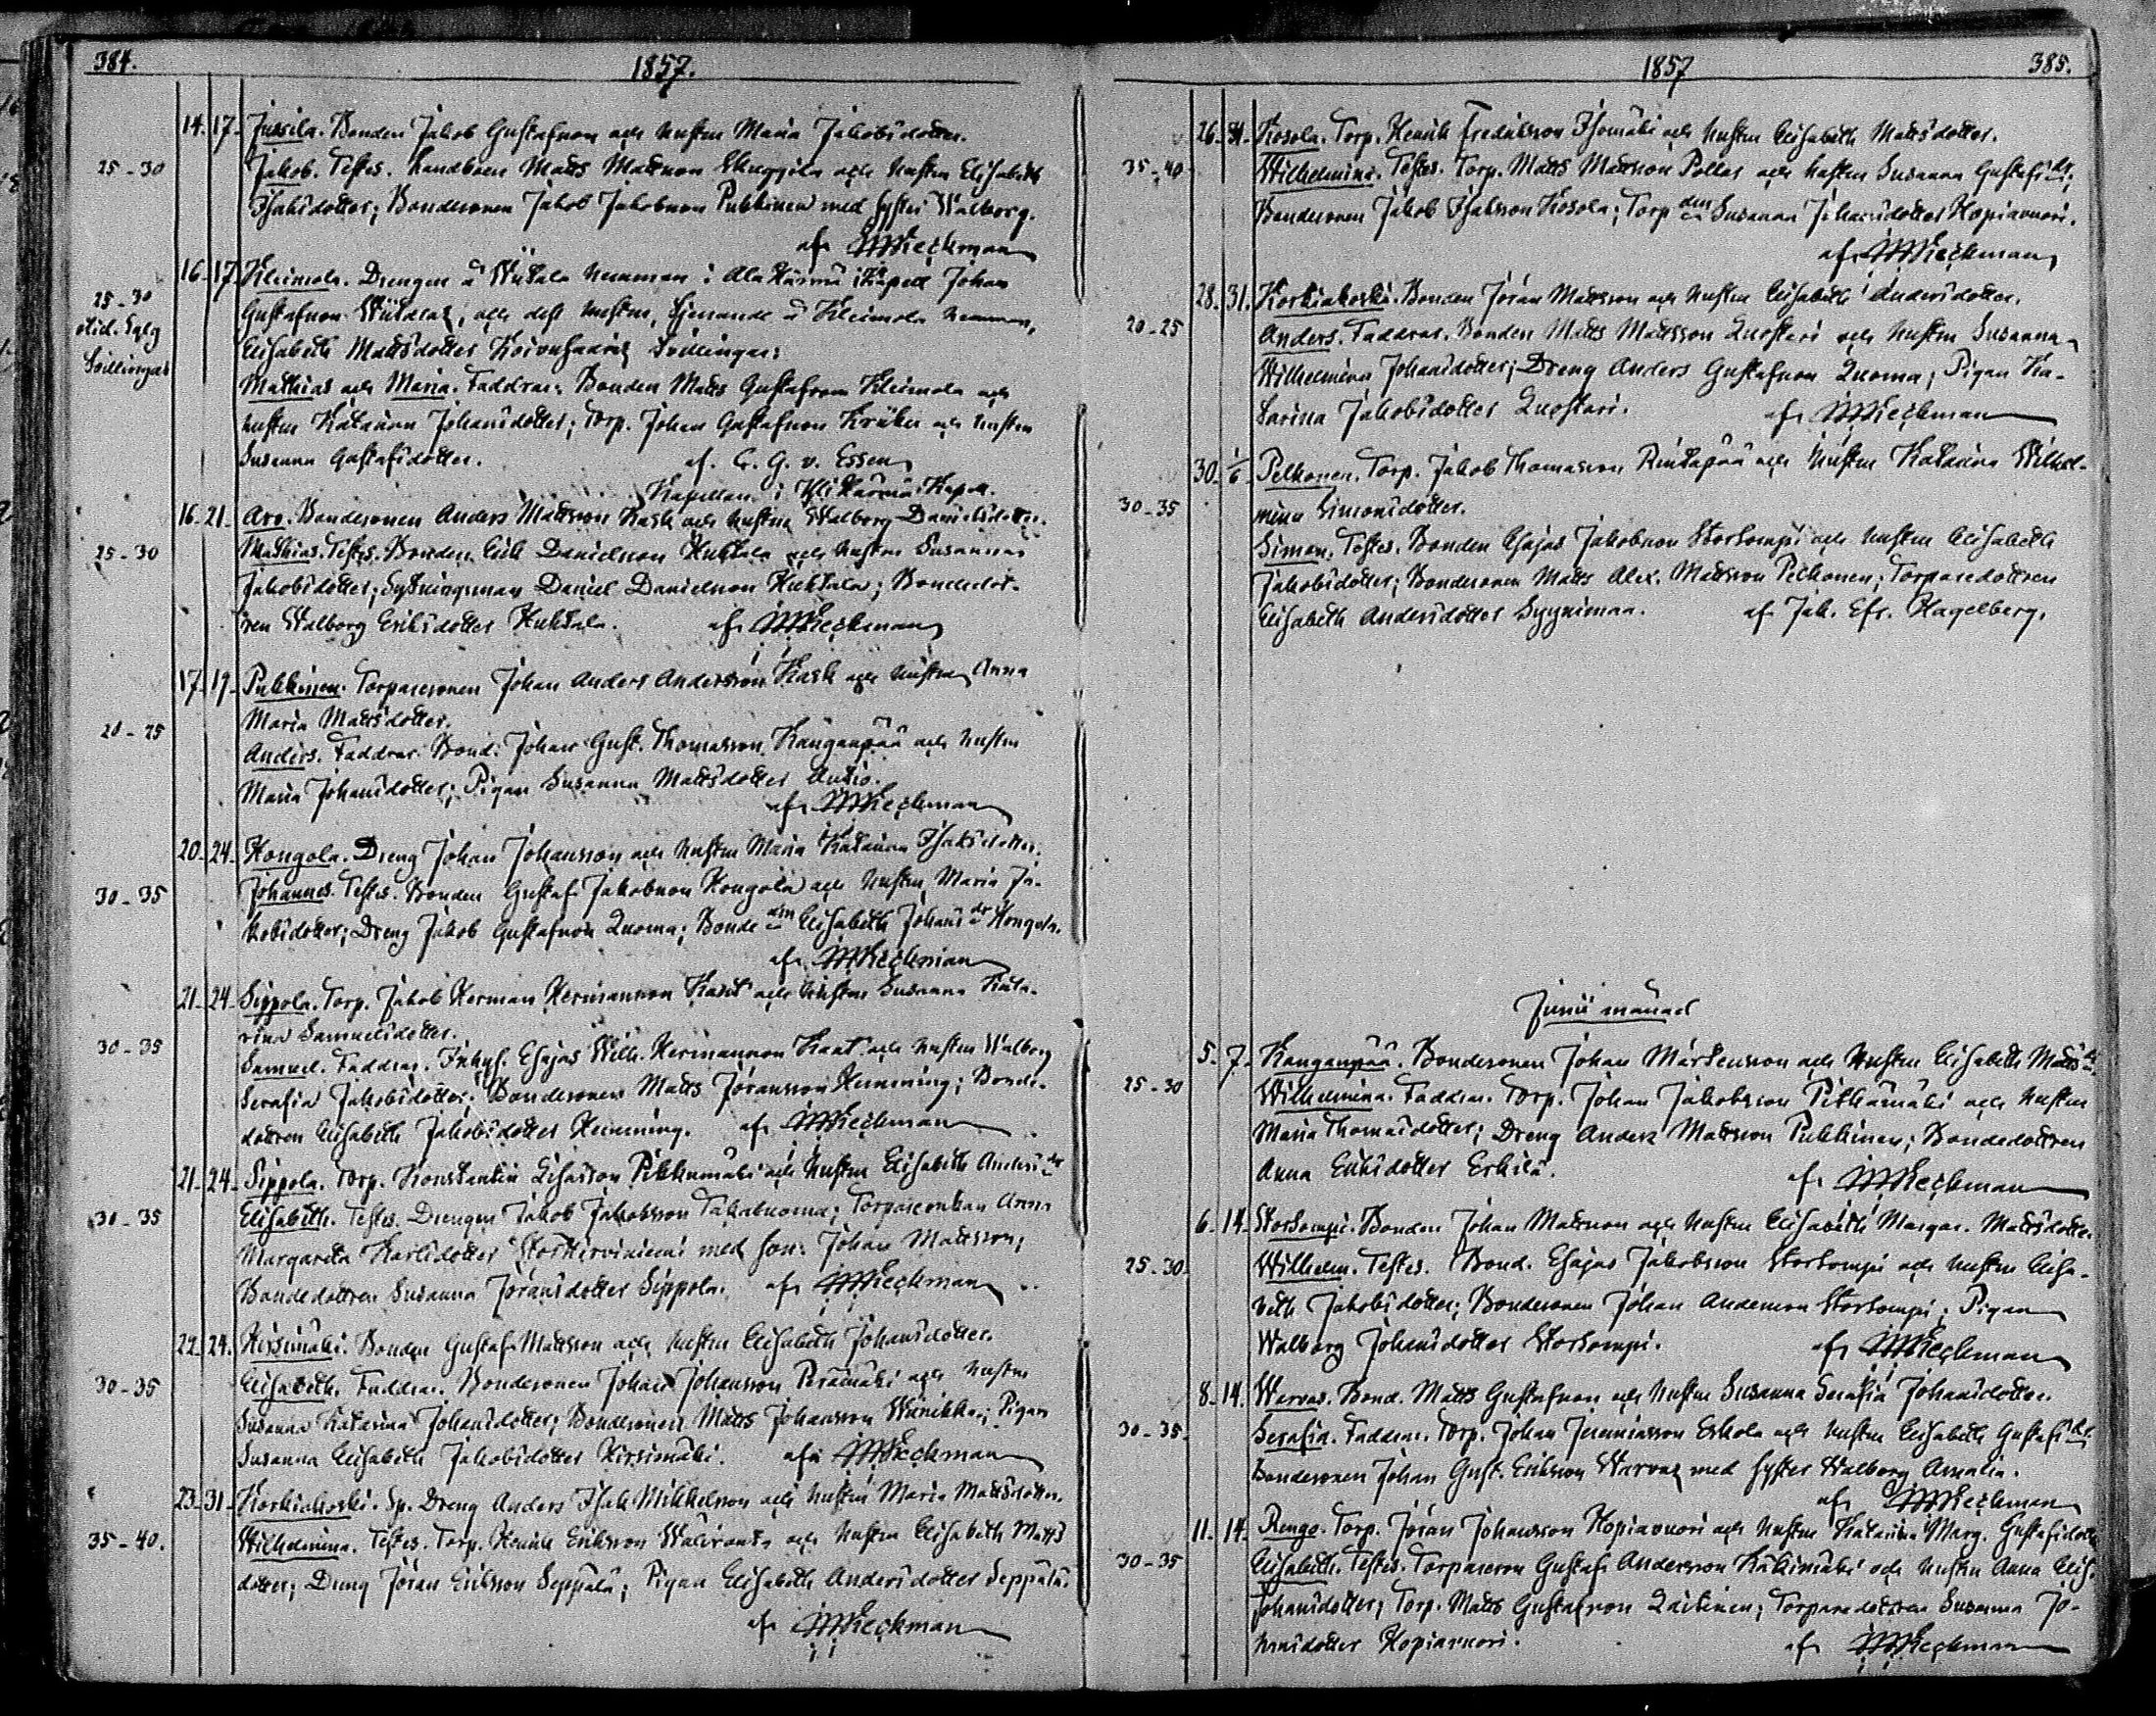 384.
1857.
14. 17. Jussila. Bonden Jakob Gustafsson och hustru Maria Jakobsdotter.
25-30 Jakob. Testes. Landboen Matts Mattsson och hustru Elisabeth
Isaksdotter; Bondesonen Jakob Jakobsson Pukkinen med syster Walborg.
af
16. 17. Kleimola. Drengen å hemman i Ala Härmä Kapell Johan
25-30 Gustafsson, och dess hustru, tjenande å Kleimola hemman,
Elisabeth Mattsdotter tvillingar:
tvillingar
Mathias och Maria. Faddrar: Bonden Matts Gustafsson Kleimola och
hustru Katarina Johansdotter; Torp. Johan Gustafsson och hustru
Susanna Gustafsdotter. af. C. G. v. Essen
Kapellan i Kapell.
16. 21. Aro. Bondesonen Anders Mattsson och hustru Walborg Danielsdotter.
25-30 Mathias. Testes. Bonden Erik Danielsson Huhtala och hustru Susanna
Jakobsdotter; Sytningsman Daniel Danielsson Huhtala; Bondedot-
ren Walborg Eriksdotter Huhtala. af
17. 19. Pukkinen. Torparesonen Johan Anders Andersson och hustru Anna
Maria Mattsdotter.
20-25 Anders. Faddrar. Bond. Johan Gust. Thomasson Kanganpää och hustru
Maria Johansdotter; Pigan Susanna Mattsdotter
af
20. 24. Hongola. Dreng Johan Johansson och hustru Maria Katarina Isaksdotter.
30-35 Johannes. Testes. Bonden Gustaf Jakobsson Hongola och hustru Maria Ja-
kobsdotter; Dreng Jakob Gustafsson Luoma; Bonde Elisabeth Johansdr Hongola.
af
21. 24. Sippola. Torp. Jakob Herman Hermansson och hustru Susanna Kata-
rina Samuelsdotter.
30-35 Samuel. Faddrar. Inhys. Esajas Wilh. Hermansson och hustru Walborg
Serafia Jakobsdotter; Bondesonen Matts Göransson Hemming; Bonde-
dottren Elisabeth Jakobsdotter Hemming. af
21. 24. Sippola. Torp. Konstantin Pikkumäki och hustru Elisabeth Andersdr
30-35 Elisabeth. Testes. Drengen Jakob Jakobsson Takaluoma; Torpareenkan Anna
Margareta Karlsdotter med son: Johan Mattsson;
Bondedottren Susanna Göransdotter Sippola. af
22. 24. Hirsimäki. Bonden Gustaf Mattsson och hustru Elisabeth Johansdotter.
30-35 Elisabeth. Faddrar. Bondesonen Johan Johansson Perämäki och hustru
Susanna Katarina Johansdotter; Bondesonen Matts Johansson; Pigan
Susanna Elisabeth Jakobsdotter Hirsimäki. af
23. 31. Korkiakoski. Sp. Dreng Anders Isak Mikkelsson och hustru Maria Mattsdotter.
35-40. Wilhelmina. Testes. Torp. Henrik Eriksson och hustru Elisabeth Matts
dotter; Dreng Göran Eriksson Seppälä; Pigan Elisabeth Andersdotter Seppälä.
af
1857
385.
26. 31. Kosola. Torp. Henrik Fredriksson Isomäki och hustru Elisabeth Mattsdotter.
35-40 Wilhelmina. Testes. Torp. Matts Mattsson Pollar och hustru Susanna Gustafsdr;
Bondesonen Jakob Isaksson Kosola; Torp Susanna Johansdotter Hopiavuori.
af
28. 31. Korkiakoski. Bonden Göran Mattsson och hustru Elisabeth Andersdotter.
20-25 Anders. Faddrar. Bonden Matts Mattsson Luostari och hustru Susanna
Wilhelmina Johansdotter; Dreng Anders Gustafsson Luoma; Pigan Ka-
tarina Jakobsdotter Luostari. af
30. 1/6 Pelkonen. Torp. Jakob Thomasson Rintapää och hustru Katarina Wilhel-
30-35 mina Simonsdotter.
Simon. Testes. Bonden Esajas Jakobsson Stortompi och hustru Elisabeth
Jakobsdotter; Bondesonen Matts Alex. Mattsson Pelkonen; Torparedottren
Elisabeth Andersdotter Syynimaa. af Jak. Efr. Hagelberg.
Junii månad
5. 7. Kanganpää. Bondesonen Johan Mårtensson och hustru Elisabeth Mattsdr
25-30 Wilhelmina. Faddrar. Torp. Johan Jakobsson Pitkämäki och hustru
Maria Thomasdotter; Dreng Anders Mattsson Pukkinen; Bondedottren
Anna Eriksdotter Erkilä. af
6. 14. Stortompi. Bonden Johan Mattsson och hustru Elisabeth Margar. Mattsdotter.
25-30 Wilhelm. Testes. Bond. Esajas Jakobsson Stortompi och hustru Elisa-
beth Jakobsdotter; Bondesonen Johan Andersson Stortompi; Pigan
Walborg Johansdotter Stortompi. af
8. 14. Warvas. Bond. Matts Gustafsson och hustru Susanna Serafia Johansdotter.
30-35. Serafia. Faddrar. Torp. Johan Jeremiasson Eskola och hustru Elisabeth Gustafsdr.
Bondesonen Johan Gust. Eriksson Warvas med syster Walborg Amalia.
af
11. 14. Rengo. Torp. Göran Johansson Hopiavuori och hustru Katarina Marg. Gustafsdotter
30-35 Elisabeth. Testes. Torpareson Gustaf Andersson Käkimäki och hustru Anna Elis.
Johansdotter; Torp. Matts Gustafsson Laitinen; Torparedottren Susanna Jo-
hansdotter Hopiavuori. af